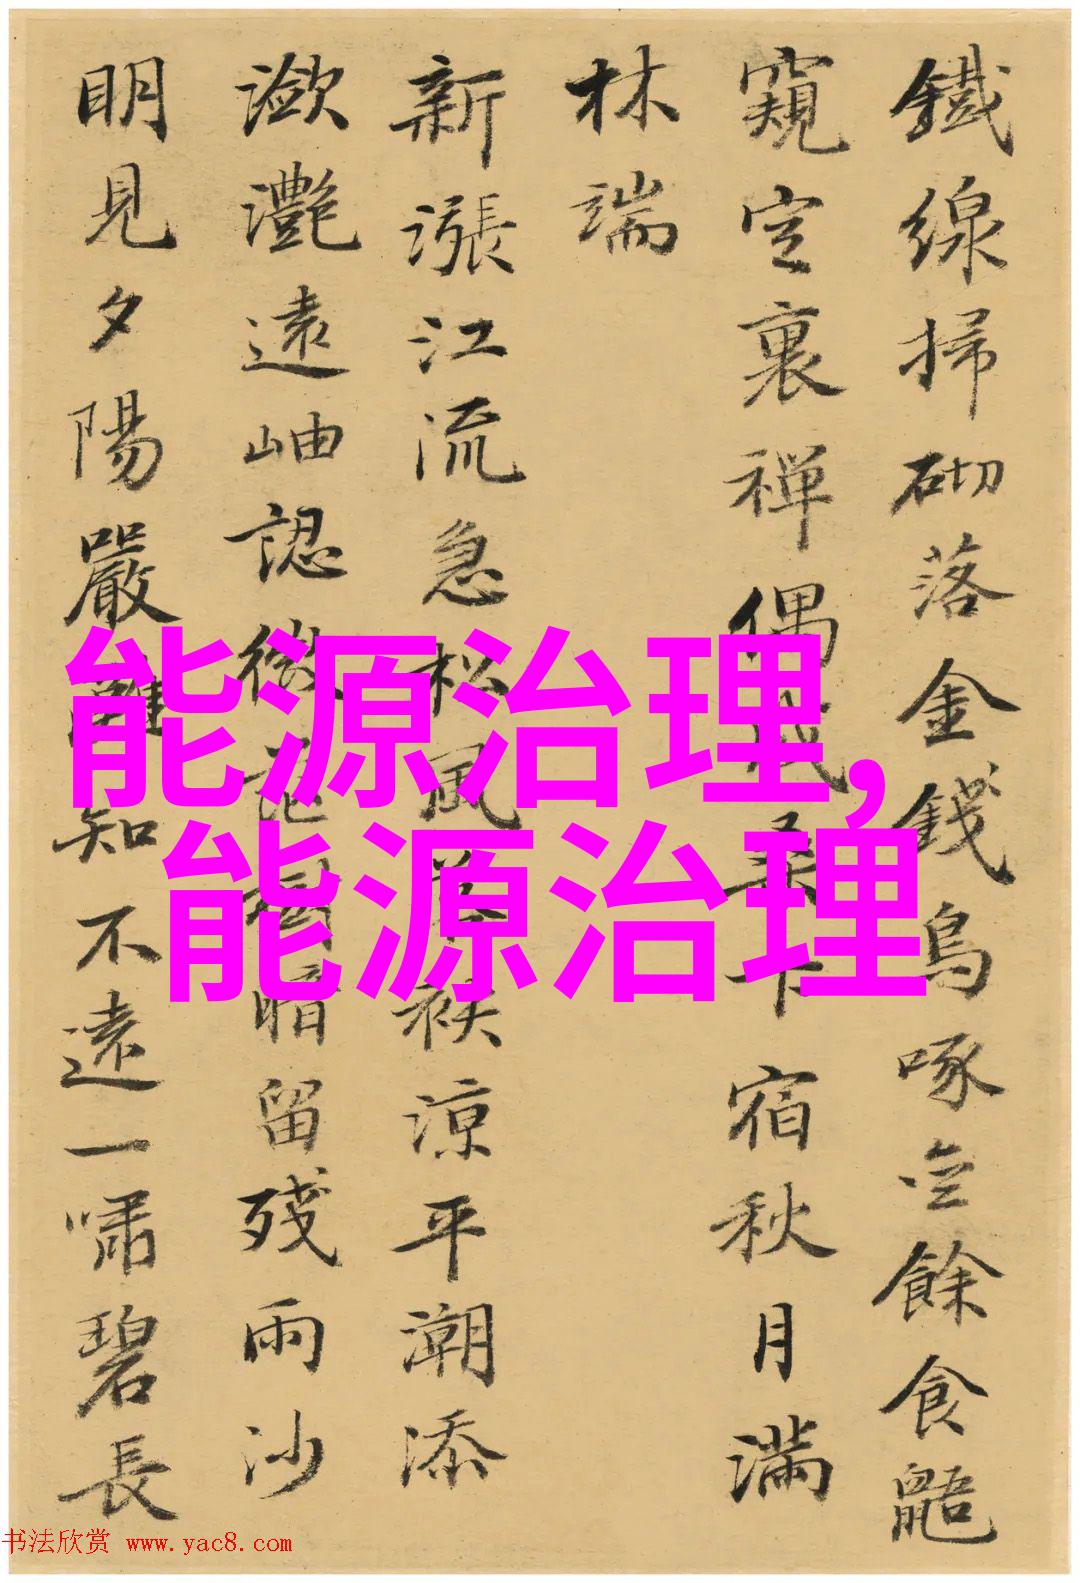 鐵線掃砌落金錢鳥啄空餘食鼯
窺定裏禪偶戒桑下宿秋月滿
林端
新漲江流急松風袂涼平潮添
瀲灩遠岫認微茫樹暗留殘雨沙
明見夕陽嚴灘知不遠一嘯碧長
能源治理,
能源治理
书法欣赏 www.yac8.com